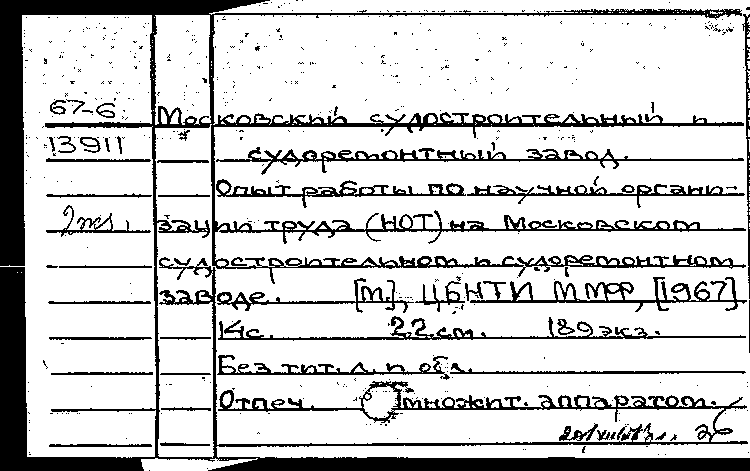 67-6 Московский судостроительный и
13911 судоремонтный завод.
Опыт работы по научной органи-
зации труда (НОТ) на Московском
судостроительном и судоремонтном
заводе. [М.], ЦБНТИ ММФ, [1967].
14с. 22 см. 189 экз.
Без тит. л. и обл.
Отпеч. множит. аппаратом.